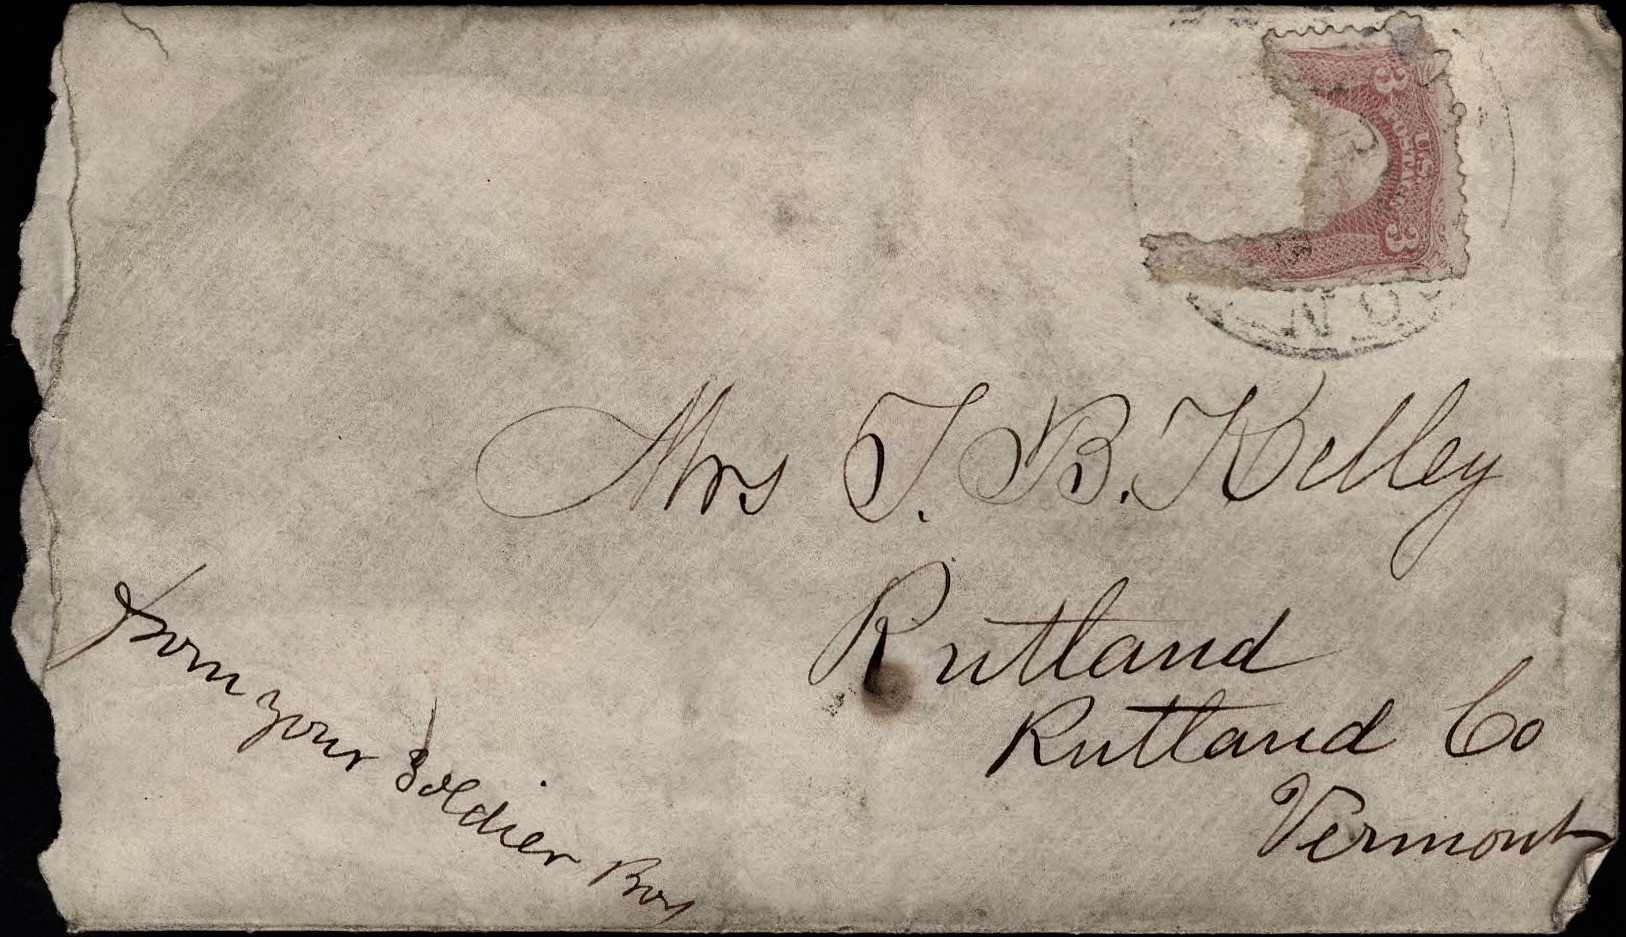 3 3
U.S. POSTAGE
Mrs T. B. Kelley
Rutland
Rutland Co
Vermont
from your Soldier Boy